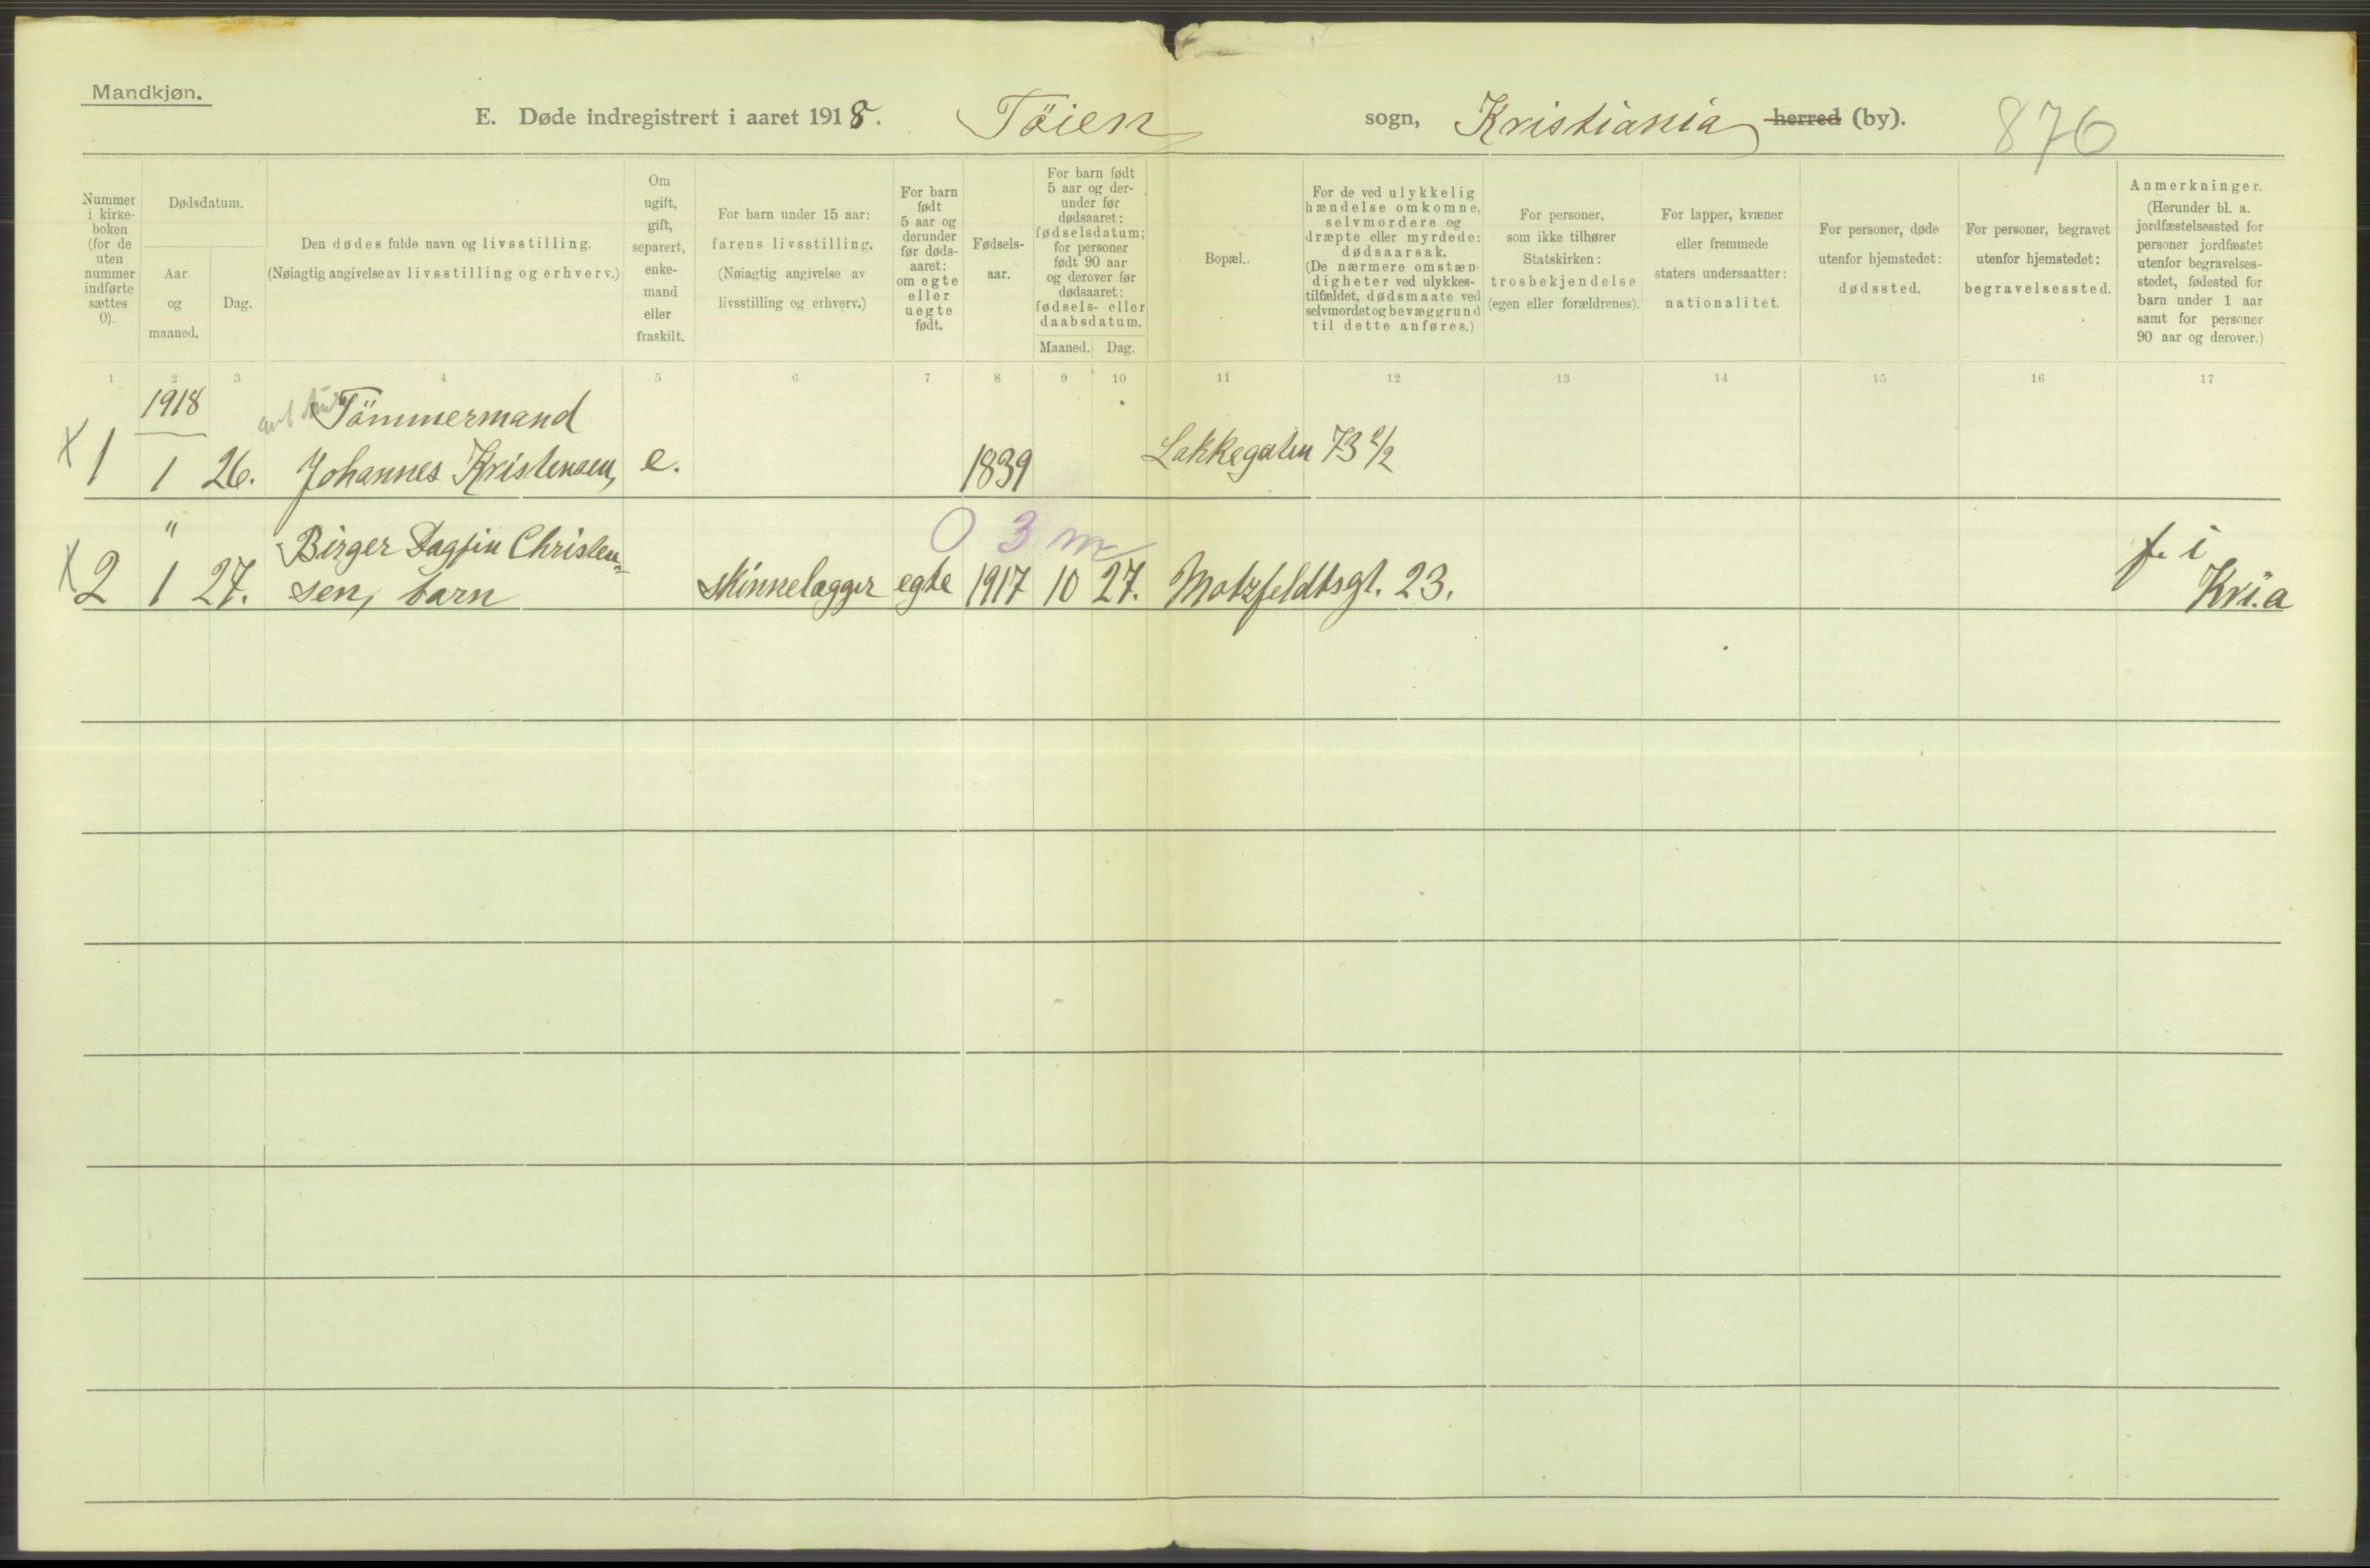 Mandkjøn.
E. Døde indregistrert i aaret 1918. Töien sogn, Kristiania herred (by). 876
Nummer i kirke-boken (for de uten nummer indførte sættes 0).
Dødsdatum.
Aar og maaned.
Dag.
Den dødes fulde navn og livsstilling.
(Nøiagtig angivelse av livsstilling og erhverv.)
Om ugift, gift, separert, enke-mand eller fraskilt.
For barn under 15 aar:
farens livsstilling.
(Nøiagtig angivelse av
livsstilling og erhverv.)
For barn født 5 aar og derunder før døds-aaret: om egte eller uegte født.
Fødsels-aar.
For barn født 5 aar og der-under før dødsaaret: fødselsdatum; for personer født 90 aar og derover før dødsaaret: fødsels- eller daabsdatum.
Maaned. Dag.
Bopæl.
For de ved ulykkelig hændelse omkomne, selvmordere og dræpte eller myrdede: dødsaarsak.
(De nærmere omstæn-digheter ved ulykkes-tilfældet, dødsmaate ved selvmordet og bevæggrund til dette anføres.)
For personer, som ikke tilhører Statskirken: trosbekjendelse (egen eller forældrenes).
For lapper, kvæner eller fremmede staters undersaatter: nationalitet.
For personer, døde utenfor hjemstedet: dødssted.
For personer, begravet utenfor hjemstedet: begravelsessted.
Anmerkninger.
(Herunder bl. a. jordfæstelsessted for personer jordfæstet utenfor begravelses-stedet, fødested for barn under 1 aar samt for personer 90 aar og derover.)
1 2 3 4 5 6 7 8 9 10 11 12 13 14 15 16 17
1918 Tömmermand
x 1 1 26. Johannes Kristensen, e. 1839 Lakkegaten 73 2/2
" Birger Dagfin Christen- 0 3 m f. i
x 2 1 27. sen, barn skinnelægger egte 1917 10 27. Motzfeldtsgt. 23. Kri.a